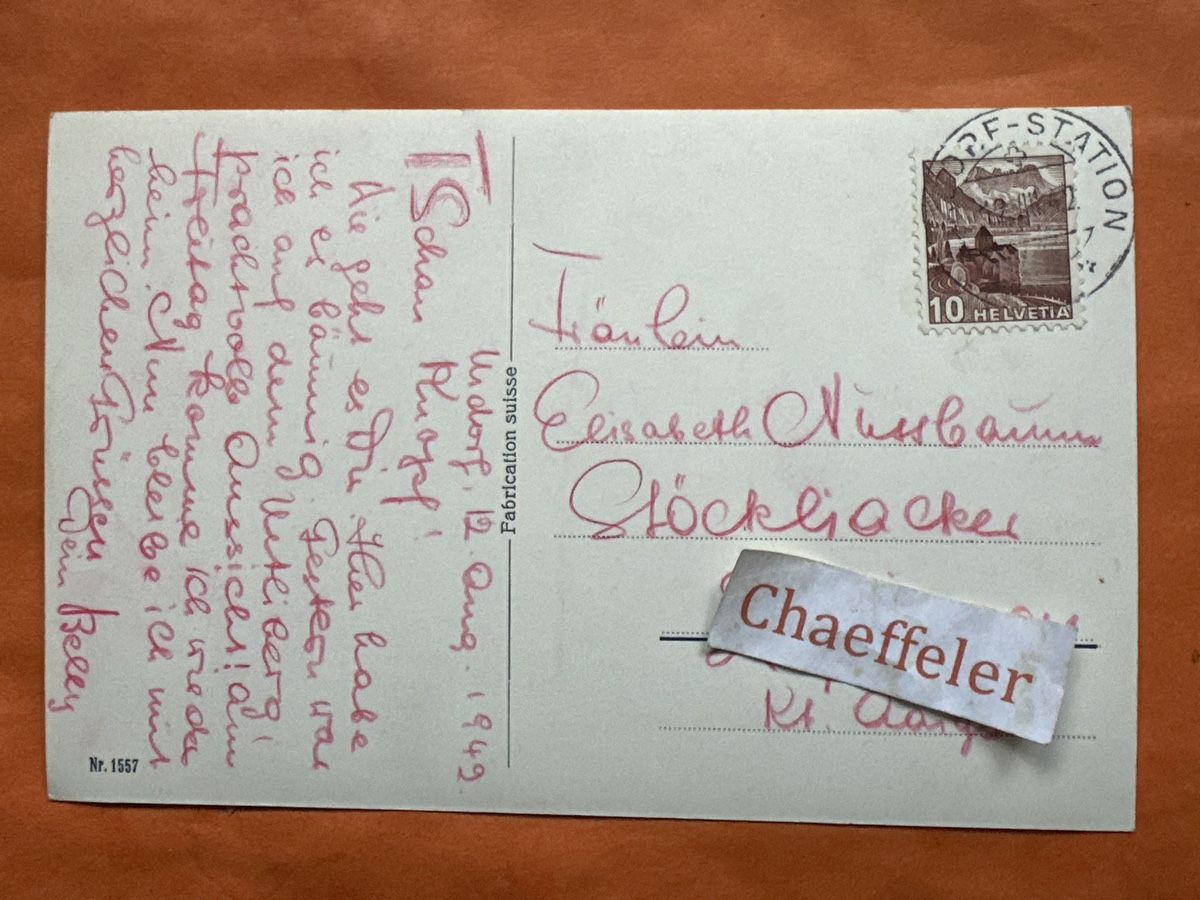 Urdorf, 12. Aug. 1942
TSchau Knopf!
Wie geht es Dir. Hier habe
ich es bäumig. Gestern war
ich auf dem Uetliberg!
prachtvolle Aussicht! am
Freitag komme ich wieder
heim. Nun bleibe ich mit
herzlichen Grüssen
Dein Belly
Nr. 1557
Fabrication suisse
ORF-STATION
10 HELVETIA
Fräulein
Elisabeth Nussbaum
Stöckliacker
Chaeffeler
Kt. Aarg